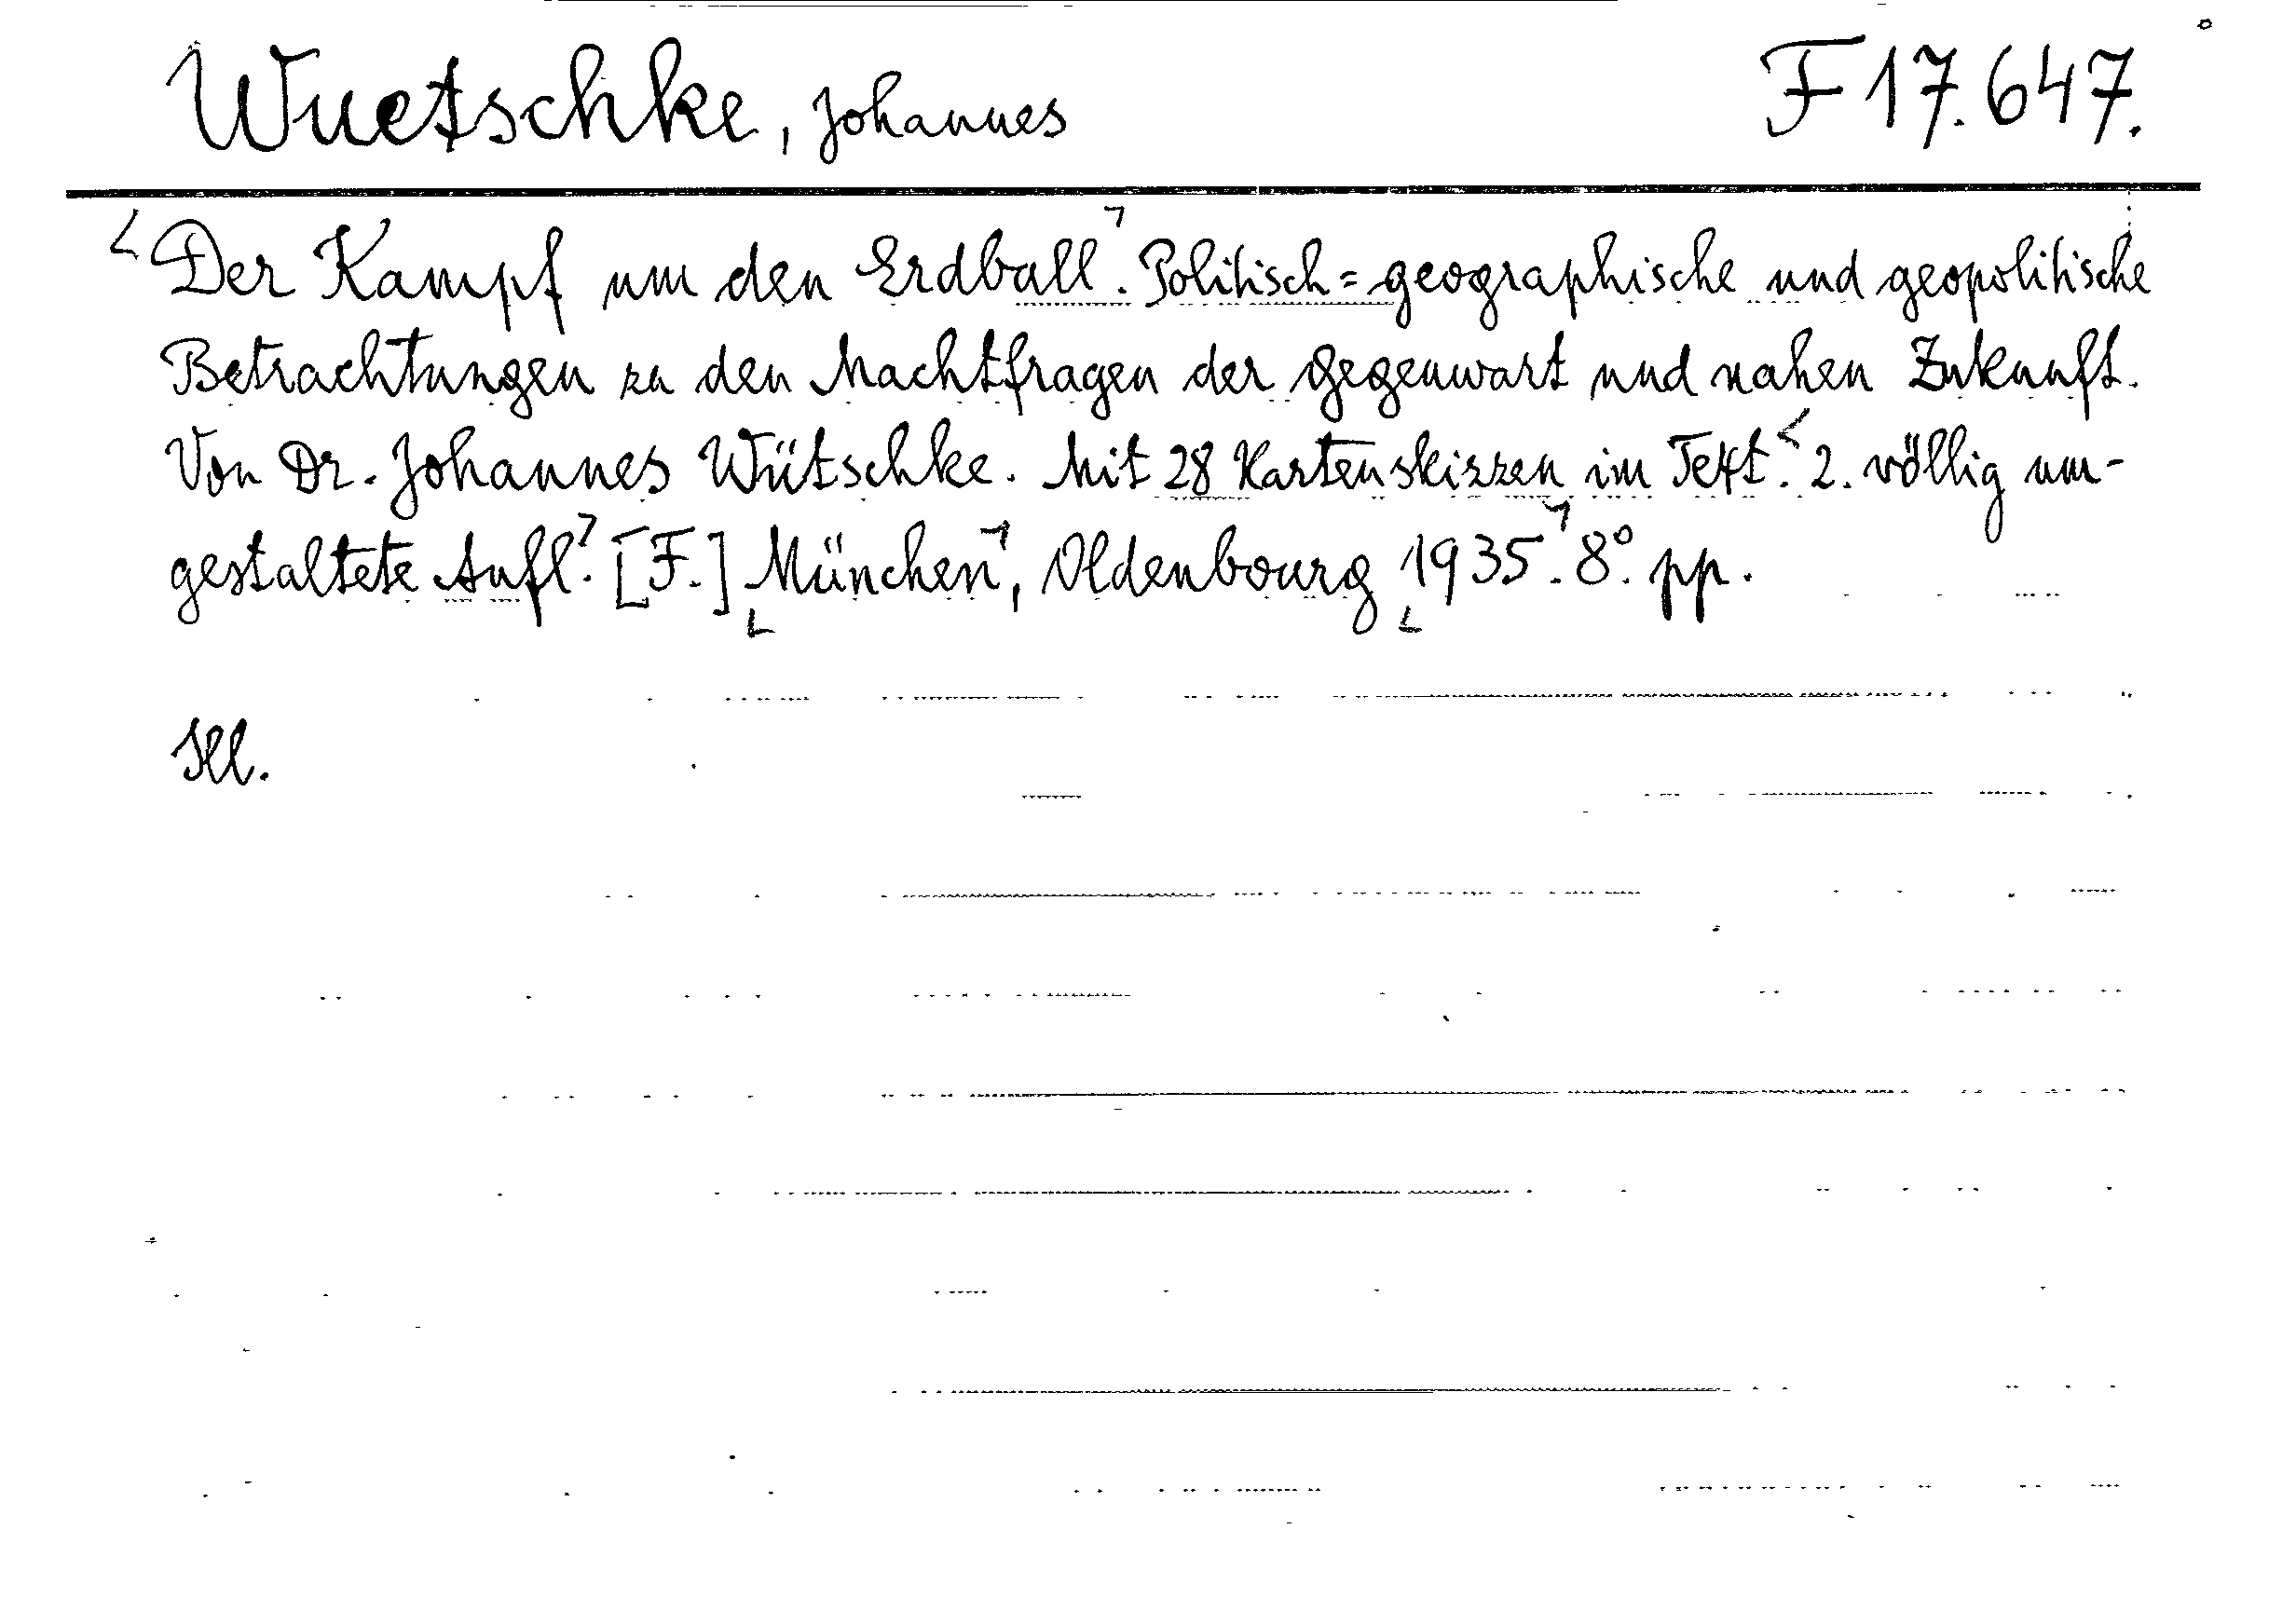 Wuetschke, Johannes F 17.647.
Der Kampf um den Erdball. Politisch=geographische und geopolitische
Betrachtungen zu den Machtfragen der Gegenwart und nahen Zukunft.
Von Dr. Johannes Wütschke. Mit 28 Kartenskizzen im Text. 2. völlig um-
gestaltete Aufl. [F.] München, Oldenbourg 1935. 8°. pp.